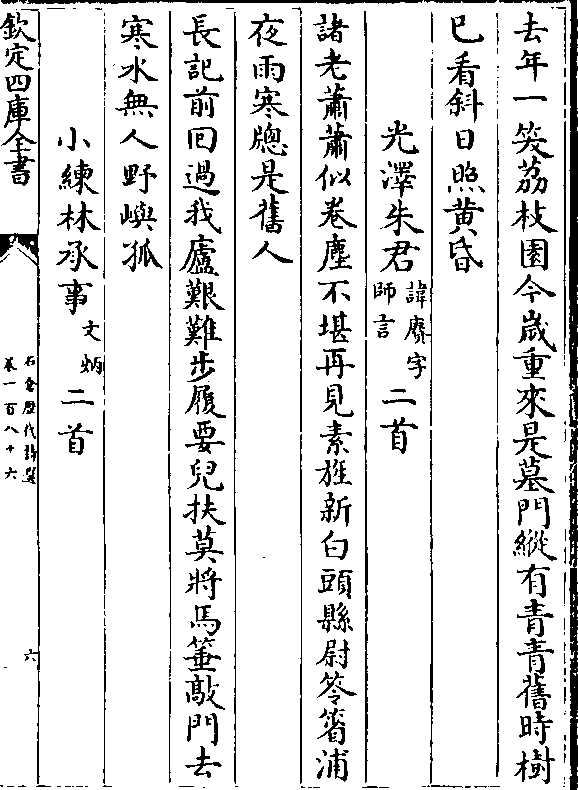 去年一笑荔枝園今嵗重來是墓門縱有青青舊時樹
已看斜日照黄昏
光澤朱君諱賡字師言二首
諸老蕭蕭似卷塵不堪再見素旌新白頭縣尉笭箵浦
夜雨寒牕是舊人
長記前回過我廬艱難步履要兒扶莫將馬箠敲門去
寒水無人野嶼孤
小練林丞事文炳二首
欽定四庫全書
石倉歴代詩選
卷一百八十六
六